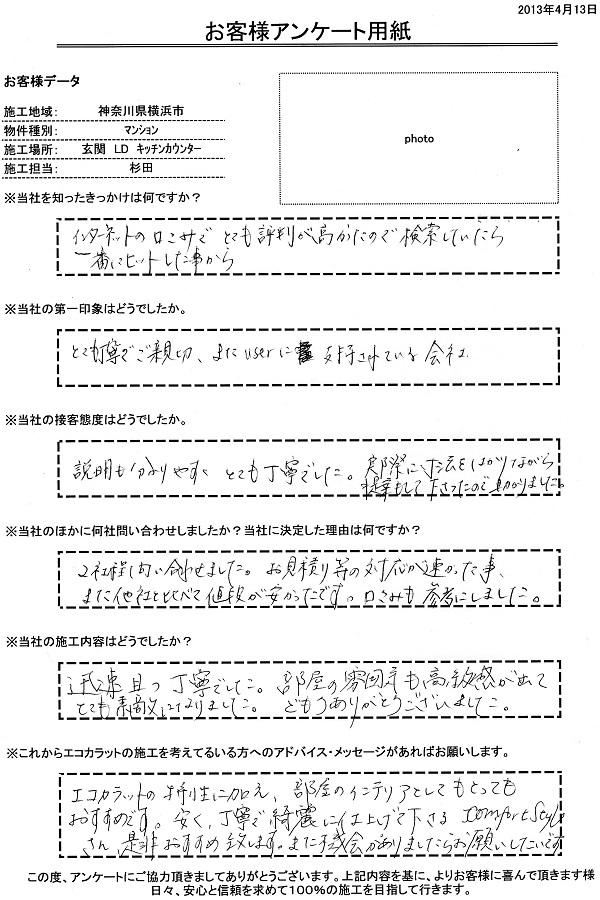 2013年4月13日
お客様アンケート用紙
お客様データ
施工地域: 神奈川県横浜市
物件種別: マンション
施工場所: 玄関 LD キッチンカウンター
施工担当: 杉田
photo
※当社を知ったきっかけは何ですか？
インターネットの口コミで とても評判が高かたので 検索していたら
一番にヒットした事から
※当社の第一印象はどうでしたか。
とても丁寧でご親切、また userに 支持されている 会社
※当社の接客態度はどうでしたか。
説明も分かりやすく とても丁寧でした。 実際に寸法をはかりながら
提案もして下さったので助かりました。
※当社のほかに何社問い合わせしましたか？当社に決定した理由は何ですか？
2社程問い合わせました。 お見積り等の対応が速かった事、
また他社と比べて 値段が安かったです。口コミも参考にしました。
※当社の施工内容はどうでしたか？
迅速且つ丁寧でした。部屋の雰囲気も高級感が出て
とても素敵になりました。 どもうありがとうございました。
※これからエコカラットの施工を考えてるいる方へのアドバイス・メッセージがあればお願いします。
エコカラットの 特性に加え、部屋のインテリアとしてもとっても
おすすめです。安く、丁寧で綺麗に仕上げて下さる comfort style
さん、是非おすすめ致します。また機会がありましたらお願いしたいです
この度、アンケートにご協力頂きましてありがとうございます。上記内容を基に、よりお客様に喜んで頂きます様
日々、安心と信頼を求めて100％の施工を目指して行きます。